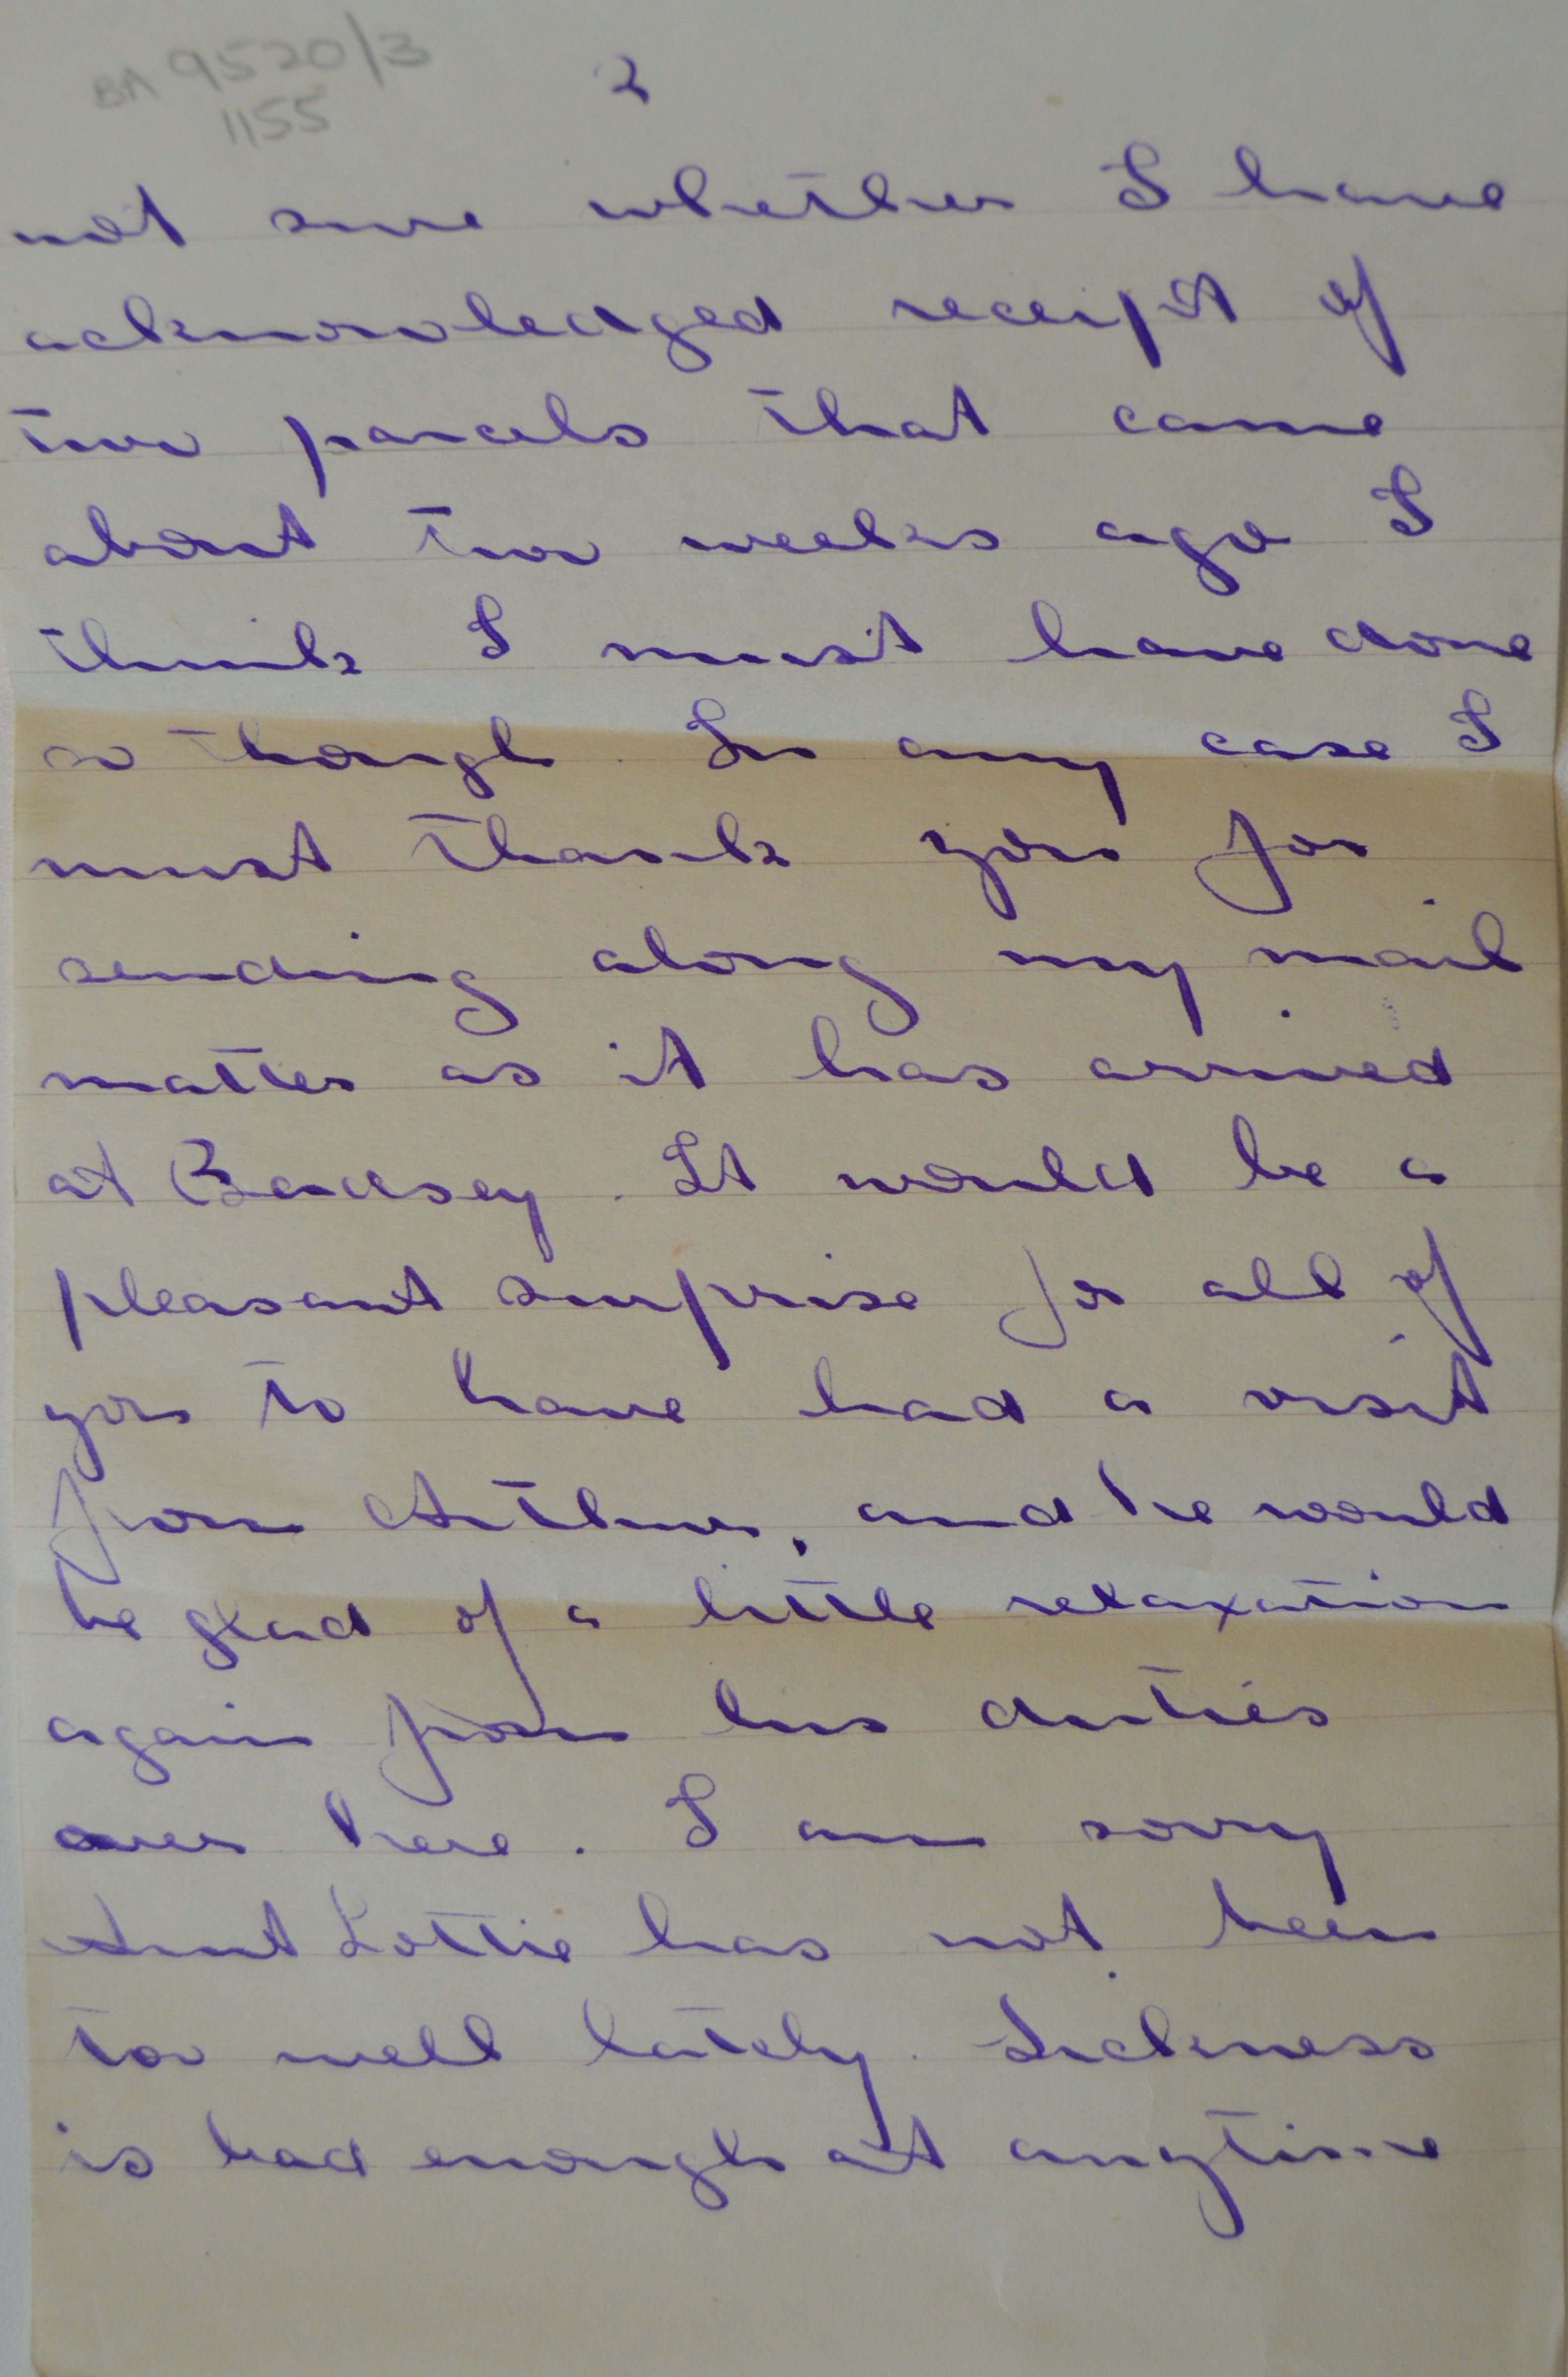 BA 9520/3
1155
2
not sure whether I have
acknowledged receipt of
two parcels that came
about two weeks ago I
think I must have done
so though. In any case I
must thank you for
sending along my mail
matter as it has arrived
at Badsey. It would be a
pleasant surprise for all of
you to have had a visit
from Arthur, and he would
be glad of a little relaxation
again from his duties
over here. I am sorry
Aunt Lottie has not been
too well lately. Sickness
is bad enough at anytime